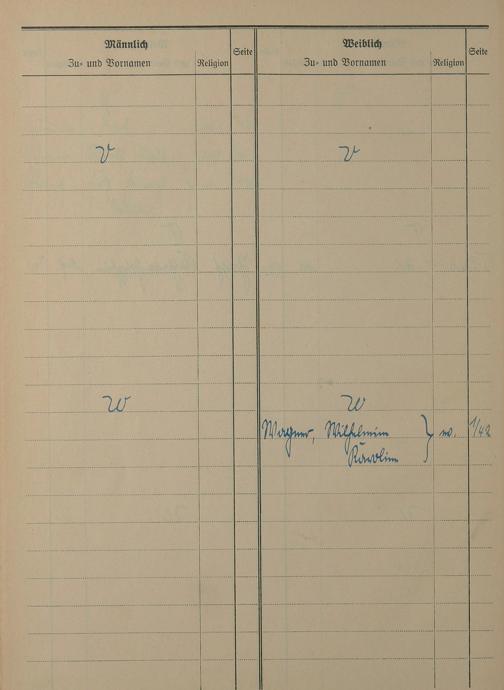 Männlich
Zu- und Vornamen Religion Seite
Weiblich
Zu- und Vornamen Religion Seite
V V
W W
Wagner, Wilhelmine
Karoline
1/42